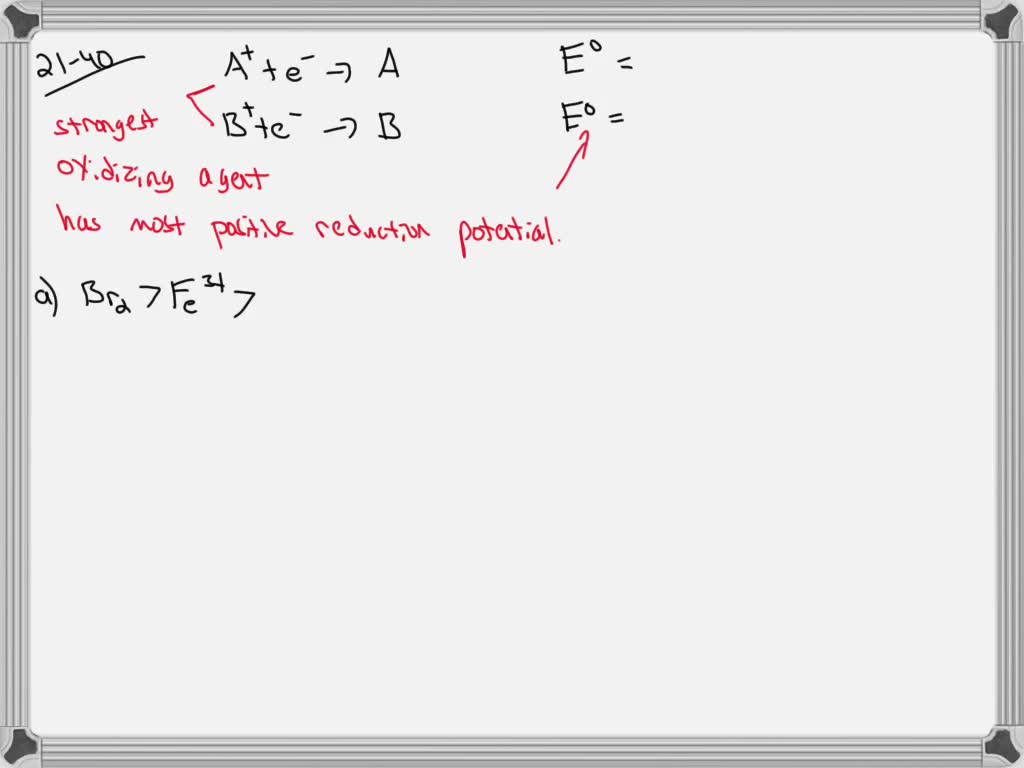 21-40
A⁺ + e⁻ → A E⁰ =
B⁺ + e⁻ → B E⁰ =
strongest
oxidizing agent
has most positive reduction potential.
a) Br₂ > Fe³⁺ >